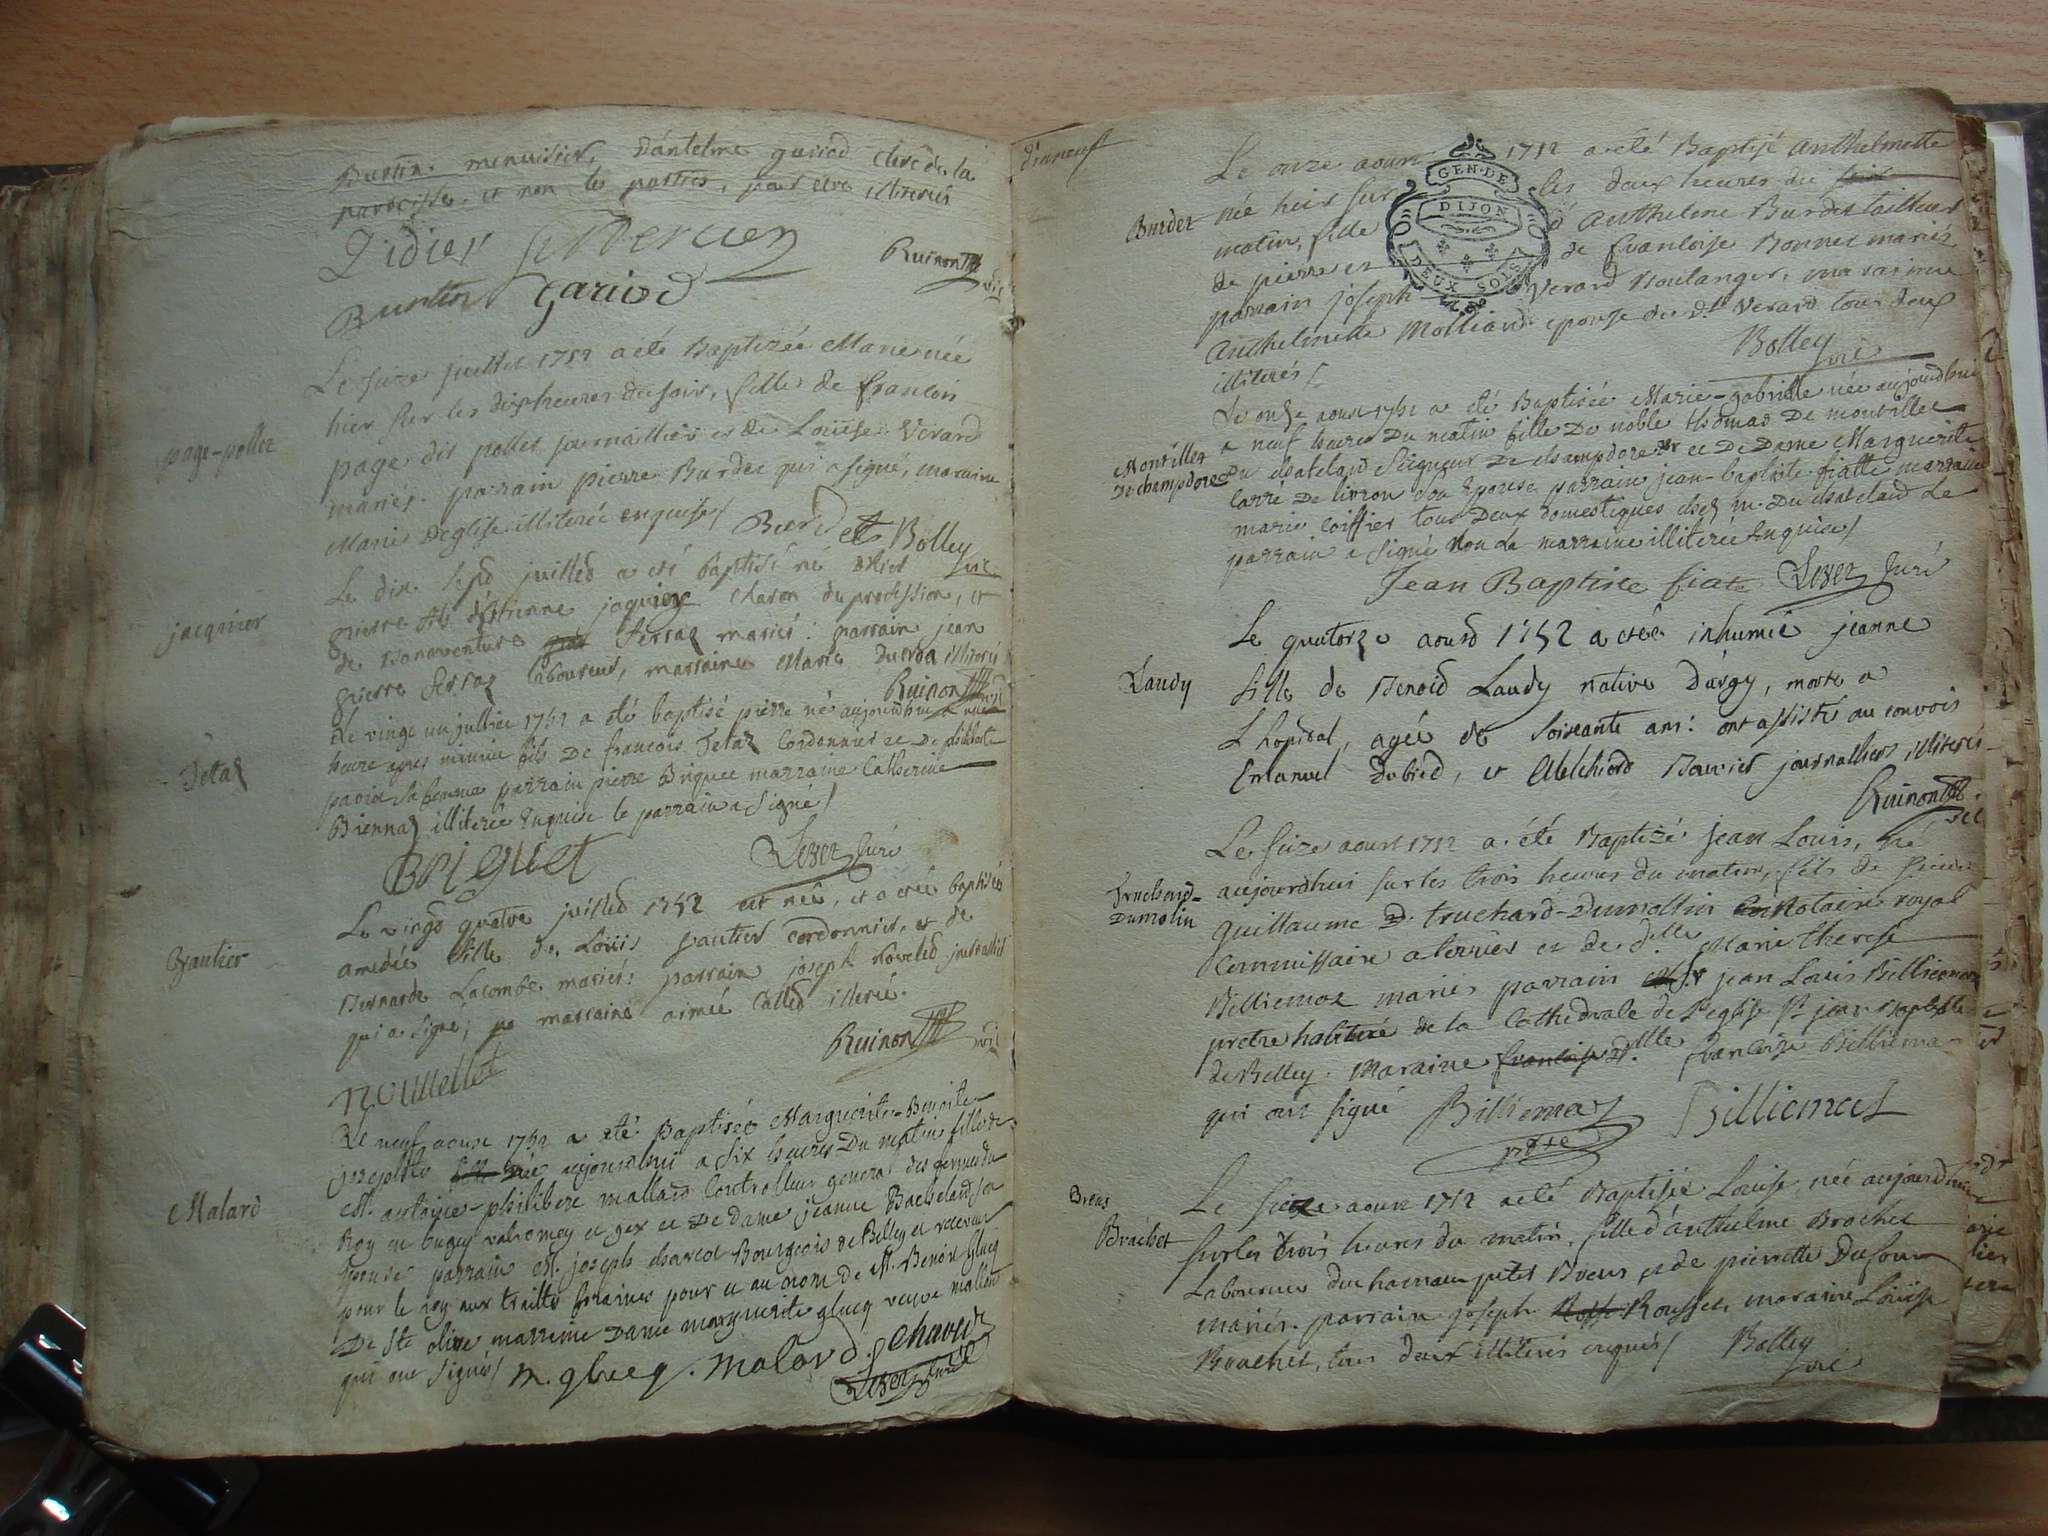 Burtin menuisier, d'antelme gariod clerc de la
paroisse, et non les portres, pour etre illiterés
Didier
Burtin gariod
Ruinon vic
page-pollet
Le seize juillet 1752 a été Baptizée Marie née
hier sur les dix heures du soir, fille de francois
page dit pollet journallier et de Loüise Verard
mariés. parrain pierre Burdet qui a signé, maraine
Marie Deglise illiterée enquise / Burdet Bolley
vic
jacquier
Le dix sept juilled a eté baptisé né hier
pierre fils d'Etienne jaquier charon de profession, et
de Bonaventure ferraz mariés: parrain jean
pierre ferraz laboureur, marraine Marie illiterés
Ruinon vic
Jetaz
Le vingt un julliet 1752 a eté baptisé pierre né aujourdhui a une
heure apres minuit fils De francois Jetaz Cordonnier et De philiberte
sa femme parrain pierre Briquet marraine Catherine
Biennaz illiterée Enquise le parrain a Signé /
Briquet Curé
Gautier
Le vingt quatre juilled 1752 est née, et a eté baptisée
amedée fille de Loüis gautier cordonnier, et de
Bernarde Lacombe mariés: parrain joseph Noveled journallier
qui a signé; marraine aimée Called illiteré.
Ruinon vic
nouvellet
Malard
Le neuf aoust 1752 a eté Baptisée Marguerite-Benoite
josephte née aujourdhui a six heures Du matin fille de
M. antoine-philibert mallard Controlleur general des fermes du
Roy en bugey valromey et gex et De dame jeanne Bachelard son
epouse parrain M. joseph charcot Bourgeois de Belley et receveur
pour le roy aux traittes foraines pour et au nom de M. Benoit glucq
De Ste olive marreine Dame marguerite glucq veuve mallard
qui ont signés / m. glucq. malard.
Curé
d'inneuf
Burdet
Le onze aoust 1752 a été Baptisé Anthelmette
née hier sur les deux heures du soir
matin, fille d'Anthelme Burdet tailleur
de pierre et de francoise Bonnet mariés
parrain joseph Verard Boulanger, maraine
Anthelmette Molliand epouse du dt. Verard tous deux
illiterés /
Bolley
vic
GEN. DE
DIJON
DEUX SOLS
Montillet
De champdore
Le onze aoust 1752 a eté Baptisée Marie-gabrielle née aujourdhui
a neuf heures Du matin fille De noble thomas De montillet
Du chatelard Seigneur De champdore et De Dame Marguerite
Carré De livron son Epouse parrain jean-baptiste fiatte marraine
marie Coiffier tous Deux domestiques chez m. Du chatelard Le
parrain a signé Non La marraine illiterée Enquise /
Jean Baptise fiate Curé
Laudy
Le quatorze aousd 1752 a eté inhumée jeanne
fille de Benoid Laudy native d'argy, morte a
L'hopital, agée de soixante ans: ont assisté au convois
Emanuel Dubied, et Melchiord Bouvier journalliers illiterés
Ruinon
vic
Truchard-
Dumolin
Le seize aoust 1752 a été Baptizé Jean Louis, né
aujourdhui sur les trois heures du matin, fils de sieur
guillaume D. truchard-Dumollin Notaire royal
Commissaire a terrier et de dlle Marie therese
Billiemaz mariés parrain Sr jean Louis Billiemaz
pretre habitué de la Cathedrale de l'eglise St jean Baptiste
de Belley. Maraine francoise dlle francoise Billiema
qui ont signé Billiemaz Billiemaz
pbtre
Brens
Brachet
Le seize aoust 1752 a été Baptisée Louise, née aujourdhui
sur les trois heures du matin, fille d'anthelme Brochet
Laboureur du hameau petit Brens et de pierrette Dufour
mariés. parrain joseph Rousset, maraine Loüise
Brachet, tous deux illiterés enquis / Bolley
vic